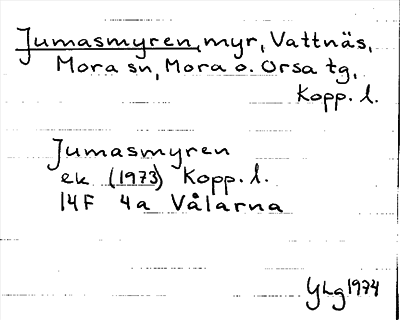 Jumasmyren, myr, Vattnäs,
Mora sn, Mora o. Orsa tg,
Kopp. l.
Jumasmyren
ek (1973) Kopp. l.
14F 4a Vålarna
YLg 1974